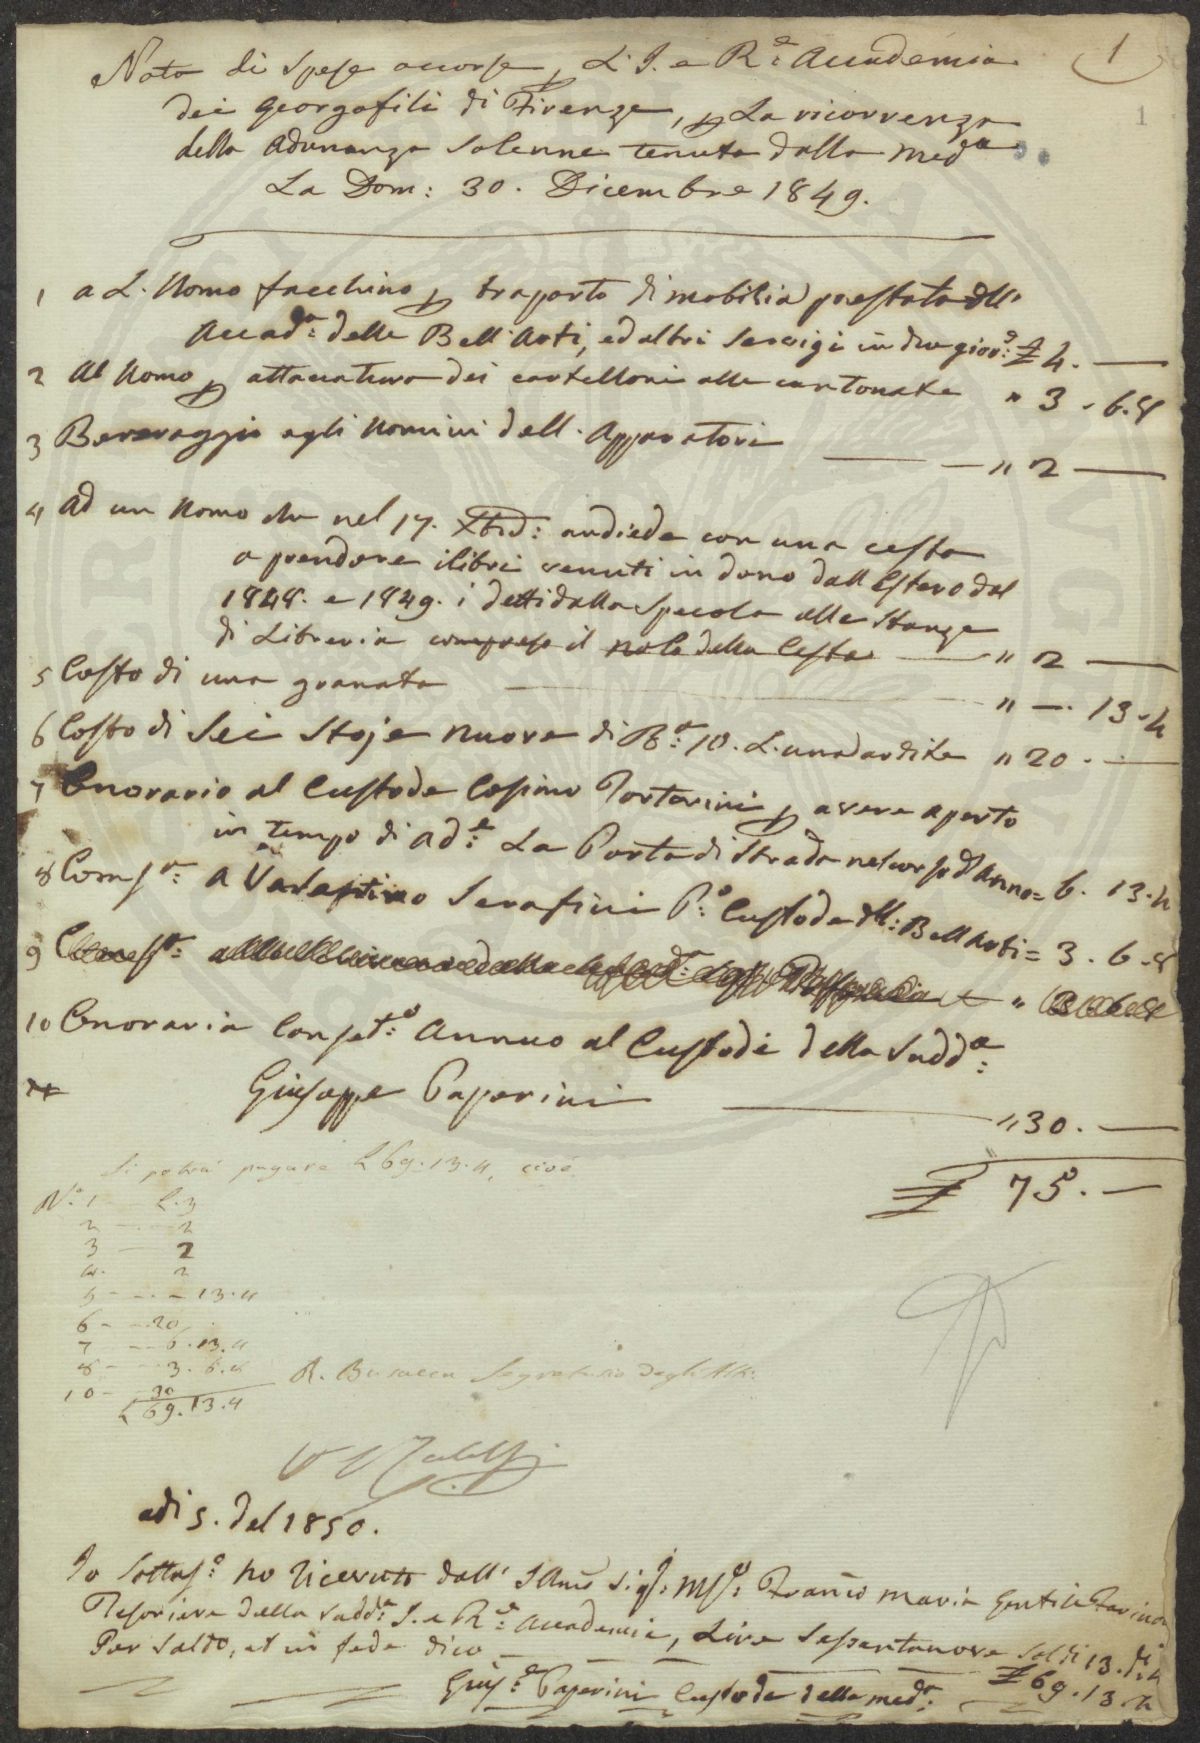 1
1
Nota di Spese occorse p L'I. e R.e Accademia
dei Georgofili di Firenze, p La ricorrenza
della Adunanza Solenne tenuta dalla med.a
La Dom: 30. Dicembre 1849.
1 a L. Uomo facchino p traporto di mobilia prestata dll'
Accad.a delle Bell'Arti, ed altri Servigi in due gior.i £ 4. —
2 Al Uomo p attaccatura dei cartelloni alle cantonate " 3. 6. 8
3 Beveraggio agli Uomini dell. Apparatori — " 2 —
4 Ad un Uomo che nel 17. Xbre: andiede con una cesta
a prendere i libri venuti in dono dall Estero dal
1848. e 1849. i detti dalla Specola alle Stanze
di Libreria compreso il nolo della Cesta — " 2 —
5 Costo di una granata — " —. 13. 4
6 Costo di Sei Stoje nuove di B.a 10. L'una ardite " 20. —
7 Onorario al Custode Cosimo Tortorini p avere aperto
in tempo di Ad.e La Porta di Strada nel corso d Anno = 6. 13. 4
8 Comp.a: A Valentino Serafini P.o Custode dll: Bell Arti = 3. 6. 8
9
10 Onoraria Conset.o Annuo al Custode della Sudd.a:
Giuseppe Paperini — " 30. —
£ 75. —
Si potrà pagare L 69. 13. 4, cioè
N.o 1 — L. 3
2 — 2
3 — 2
4. 2
5 - - . - 13. 4
6 - - 20
7 - - 6. 13. 4
8 - - 3. 6. 8
10 - 30
L 69. 13. 4
R. Busacca Segretario degli Atti:
adi 5. del 1850.
Io Sottos.o ho ricevuto dall' Illmo Sig.: M.se: Franco Maria Gentile Farinola
Tesoriere della sudd.a I. e R.e Accademia, Lire Sessantanove Soldi 13. di 4
Per Saldo, et in fede dico — £ 69. 13. 4
Gius.e Paperini Custode della med.a: